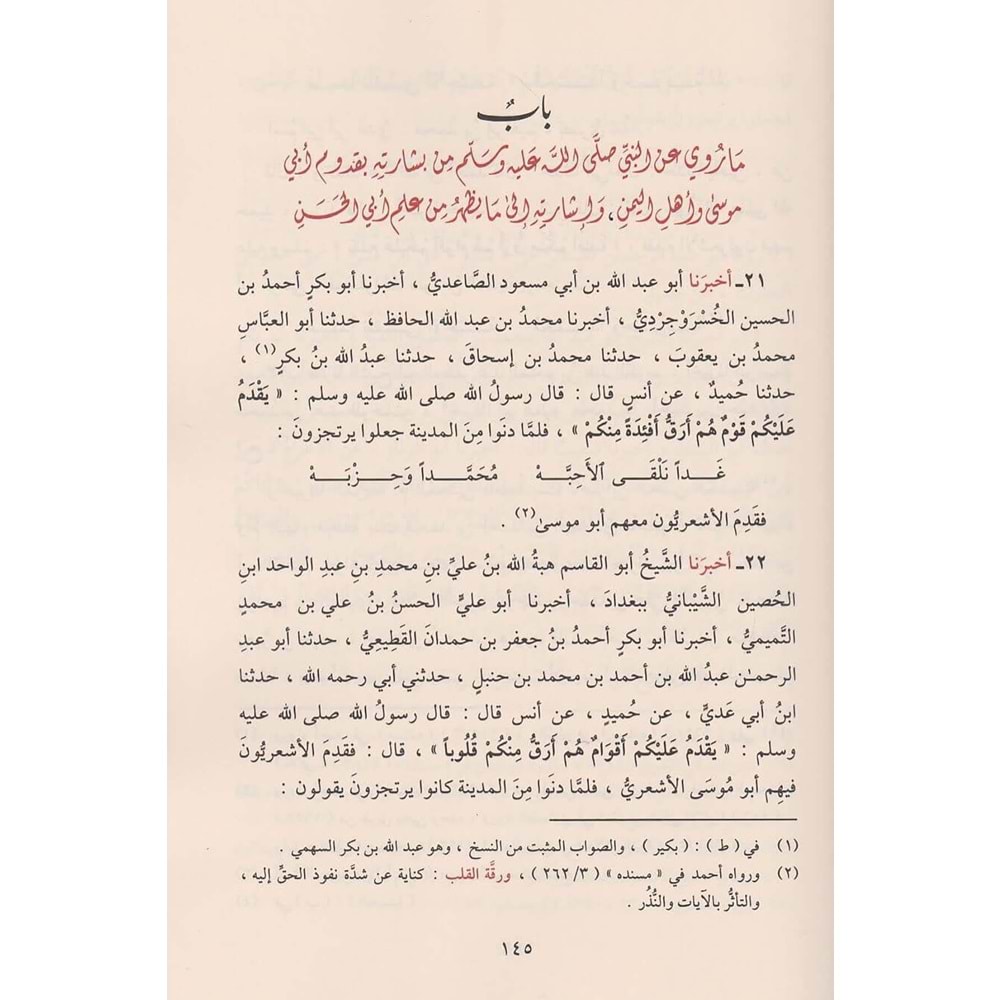 بابٌ
مَا رُوي عن النبيِّ صلَّى اللّه عَليه وسَلّم مِن بشارتِهِ بقدوم أبي
موسىٰ وأهلِ اليمنِ، وَإشارتِهِ إلىٰ مَا يظهرُ مِن علمِ أبي الحَسَنِ
٢١ـ أخبرَنا أبو عبد الله بن أبي مسعود الصَّاعديُّ ، أخبرنا أبو بكرٍ أحمدُ بن
الحسين الخُسْرَوْجِرْدِيُّ ، أخبرنا محمدُ بن عبد الله الحافظ ، حدثنا أبو العبَّاسِ
محمدُ بن يعقوبَ ، حدثنا محمدُ بن إسحاقَ ، حدثنا عبدُ الله بنُ بكرٍ(١) ،
حدثنا حُميدٌ ، عن أنسٍ قال : قال رسولُ الله صلى الله عليه وسلم : « يَقْدَمُ
عَلَيْكُمْ قَوْمٌ هُمْ أَرَقُّ أَفْئِدَةً مِنْكُمْ » ، فلمَّا دنَوا مِنَ المدينة جعلوا يرتجزونَ :
غَـداً نَلْقَـى ٱلأَحِبَّـهْ مُحَمَّـداً وَحِـزْبَـهْ
فقَدِمَ الأشعريُّون معهم أبو موسىٰ(٢) .
٢٢ـ أخبرَنا الشَّيخُ أبو القاسم هبةُ الله بنُ عليِّ بنِ محمدِ بنِ عبدِ الواحد ابنِ
الحُصين الشَّيْبانيُّ ببغدادَ ، أخبرنا أبو عليٍّ الحسنُ بنُ علي بن محمدٍ
التَّميميُّ ، أخبرنا أبو بكرٍ أحمدُ بنُ جعفر بن حمدانَ القَطِيعِيُّ ، حدثنا أبو عبدِ
الرحمـٰن عبدُ الله بن أحمد بن محمد بن حنبلٍ ، حدثني أبي رحمه الله ، حدثنا
ابنُ أبي عَديٍّ ، عن حُميدٍ ، عن أنس قال : قال رسولُ الله صلى الله عليه
وسلم : « يَقْدَمُ عَلَيْكُمْ أَقْوَامٌ هُمْ أَرَقُّ مِنْكُمْ قُلُوباً » ، قال : فقَدِمَ الأشعريُّونَ
فيهِم أبو مُوسَى الأشعريُّ ، فلمَّا دنَوا مِنَ المدينة كانوا يرتجزونَ يقولون :
(١) في ( ط ) : ( بكير ) ، والصواب المثبت من النسخ ، وهو عبد الله بن بكر السهمي .
(٢) ورواه أحمد في « مسنده » ( ٣/ ٢٦٢ ) ، ورقَّة القلب : كناية عن شدَّة نفوذ الحقِّ إليه ،
والتأثُّر بالآيات والنُّذُر .
١٤٥